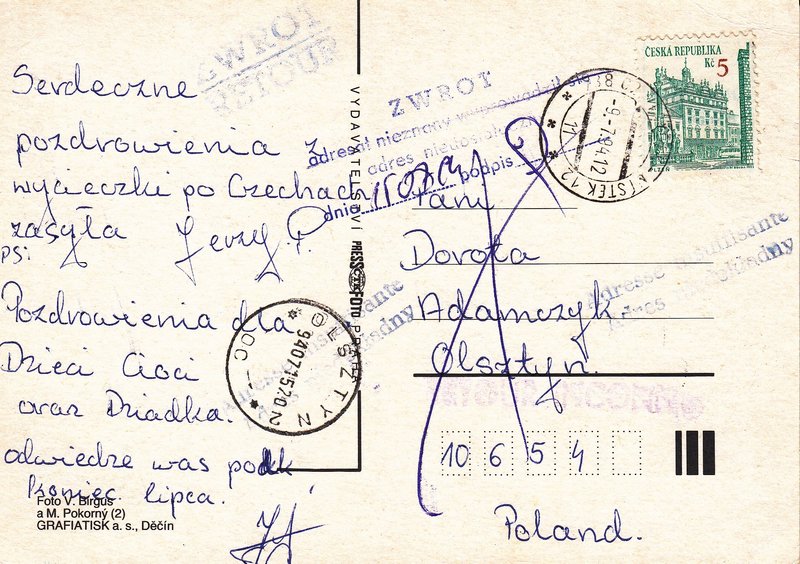 ZWROT
RETOUR
Serdeczne
pozdrowienia z
wycieczki po Czechach
zasyła Jerzy.P.
PS:
Pozdrowienia dla
Dzieci Cioci
oraz Dziadka.
odwiedzę was pod
koniec lipca.
Foto V. Birgus
a M. Pokorný (2)
GRAFIATISK a. s., Děčín
VYDAVATELSTVÍ PRESSFOTO PRAHA
ČESKÁ REPUBLIKA
Kč 5
PLZEŇ
ÍSTEK 12
-9.-7.94.12
11
ZWROT
adresat nieznany
adres niedostateczny
dnia podpis
Pani
Dorota
Adamczyk
Olsztyn.
10 6 5 4
Poland.
Adresse insuffisante
Adres niedokładny
Adresse insuffisante
Adres niedokładny
OLSZTYN
94071520N
OC